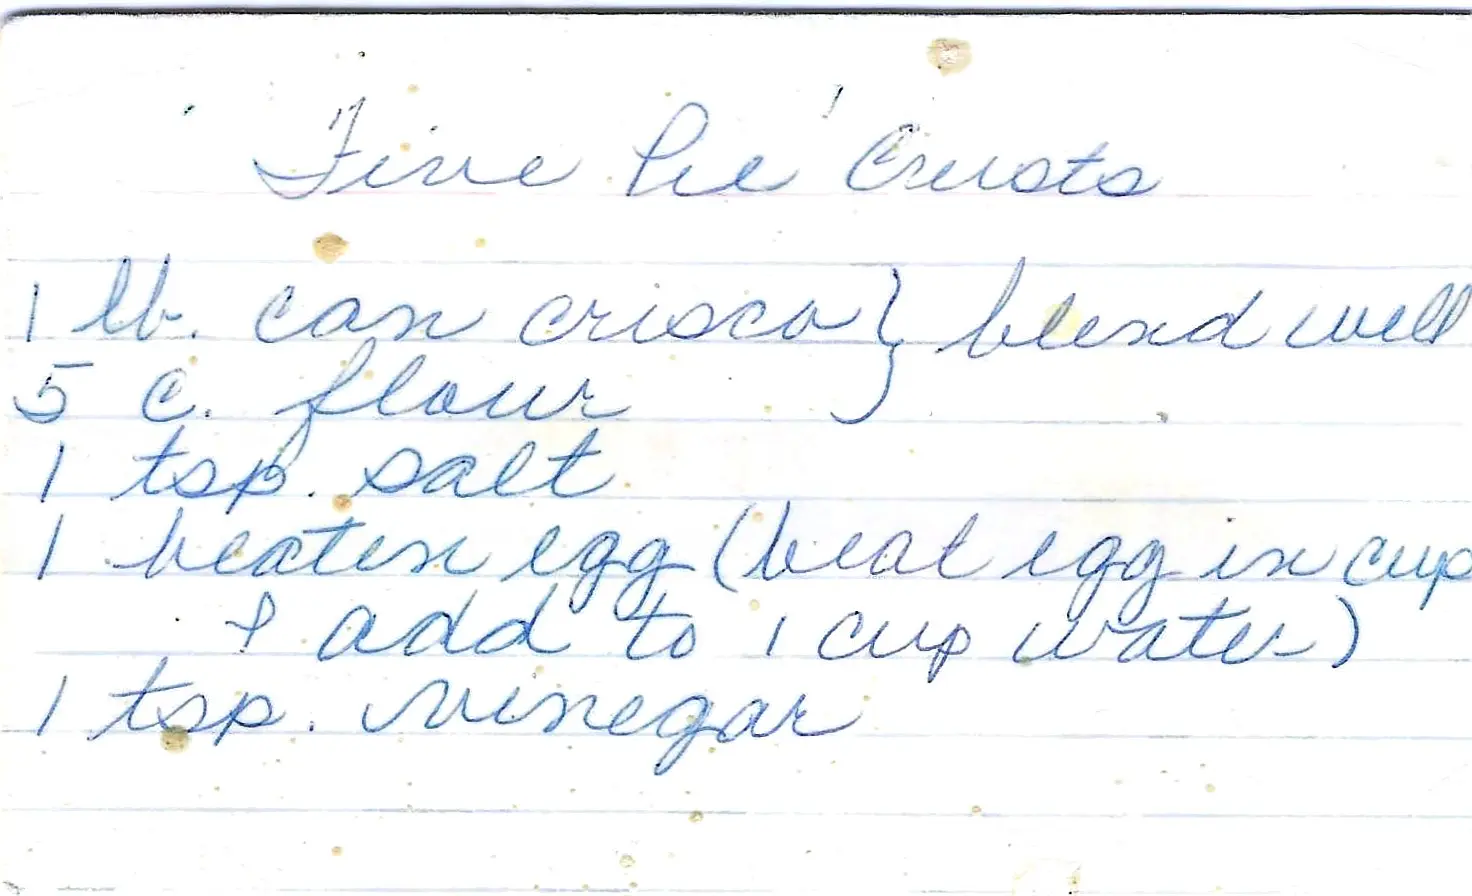 Five Pie Crusts
1 lb. can crisco } blend well
5 c. flour
1 tsp. salt
1 beaten egg (beat egg in cup
& add to 1 cup water)
1 tsp. vinegar